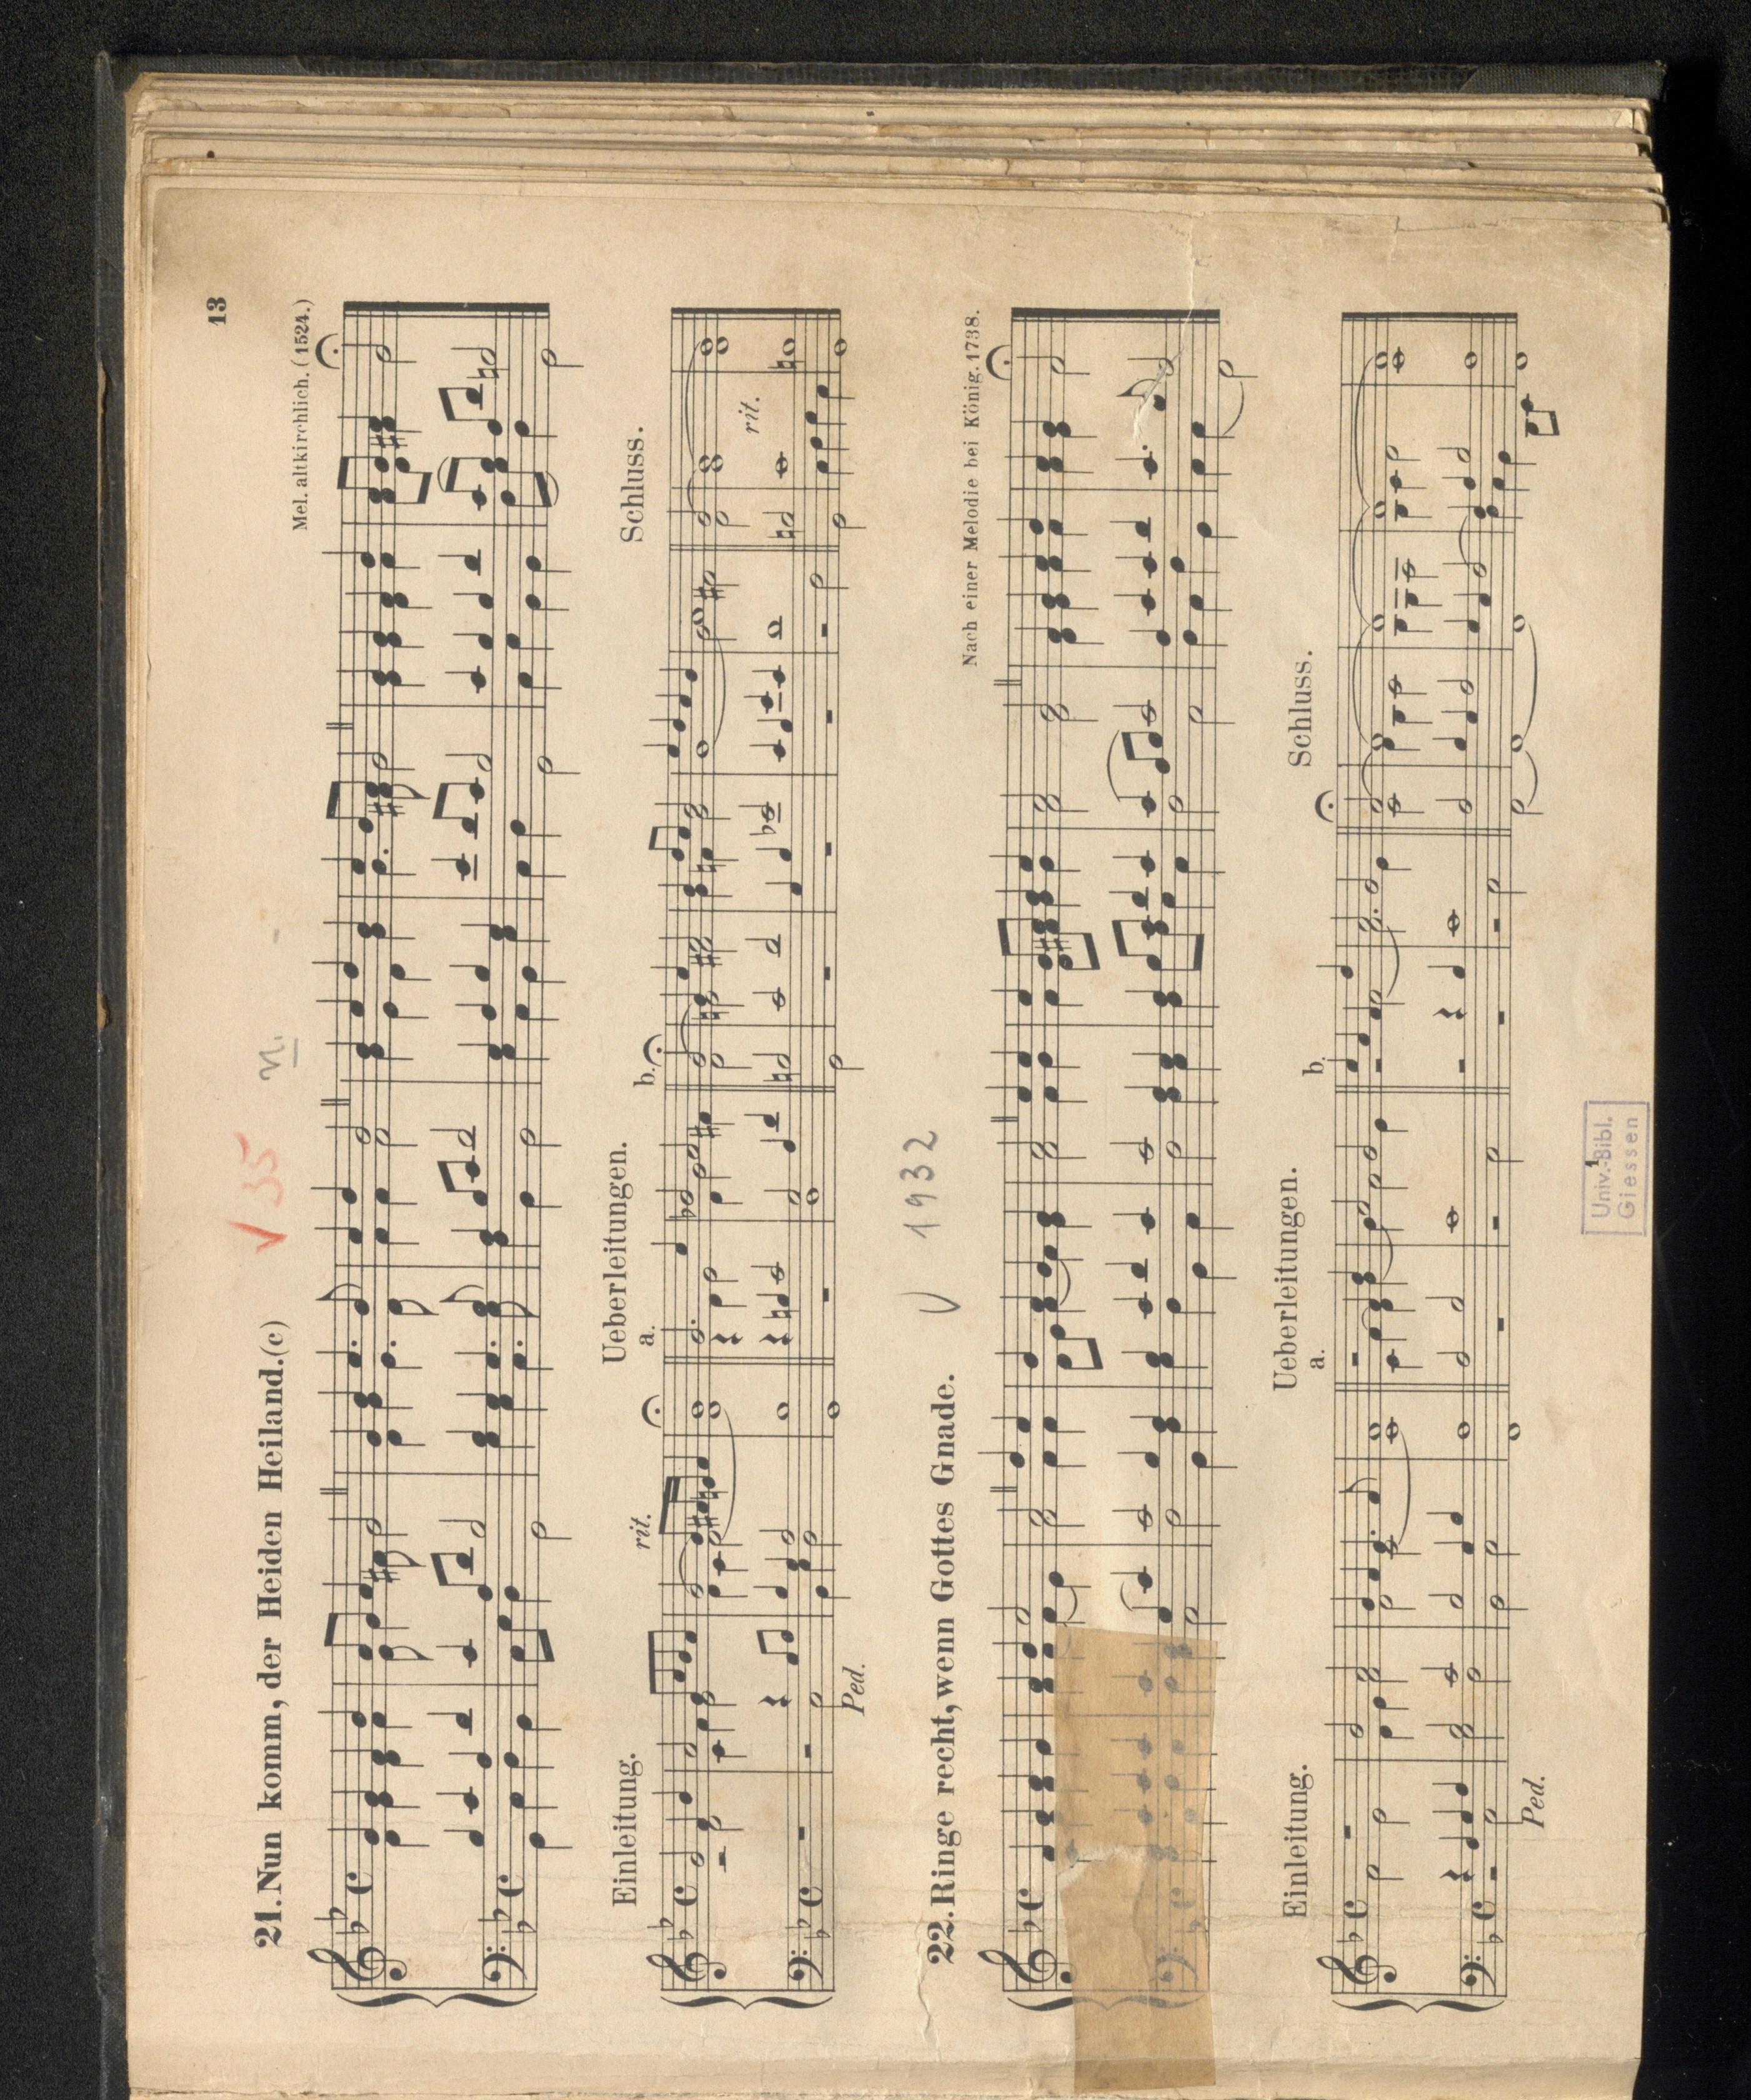 13
V 35 n.
21. Nun komm, der Heiden Heiland.(c)
Mel. altkirchlich. (1524.)
Einleitung.
rit.
Ueberleitungen.
a.
b.
Schluss.
Ped.
rit.
V 1932
22. Ringe recht, wenn Gottes Gnade.
Nach einer Melodie bei König. 1738.
Einleitung.
Ueberleitungen.
a.
b.
Schluss.
Ped.
1
Univ.-Bibl.
Giessen